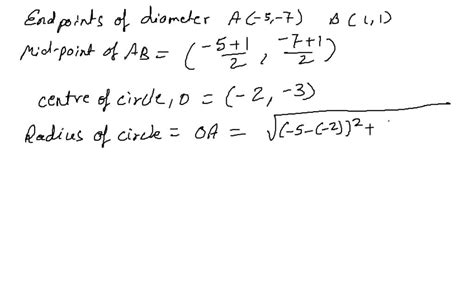 Endpoints of diameter A(-5,-7) B(1,1)
Mid-point of AB = (-5+1/2, -7+1/2)
centre of circle, O = (-2, -3)
Radius of circle = OA = √(-5-(-2))² +